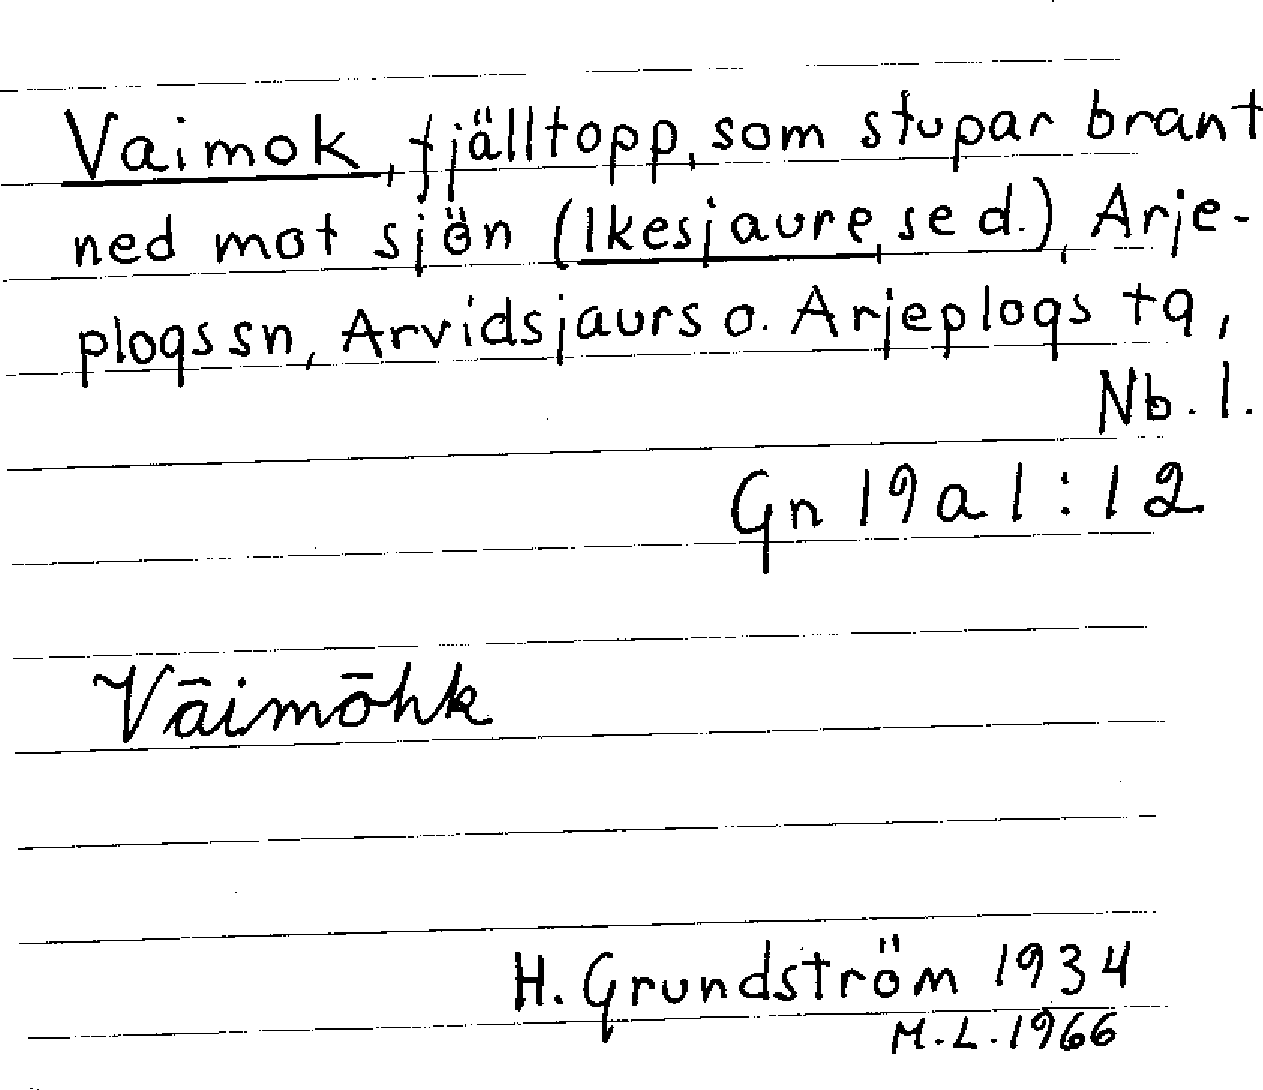 Vaimok, fjälltopp, som stupar brant
ned mot sjön (Ikesjaure, se d.), Arje-
plogs sn, Arvidsjaurs o. Arjeplogs tg,
Nb. l.
Gn 19 a 1 : 12
Vāimōhk
H. Grundström 1934
M. L. 1966